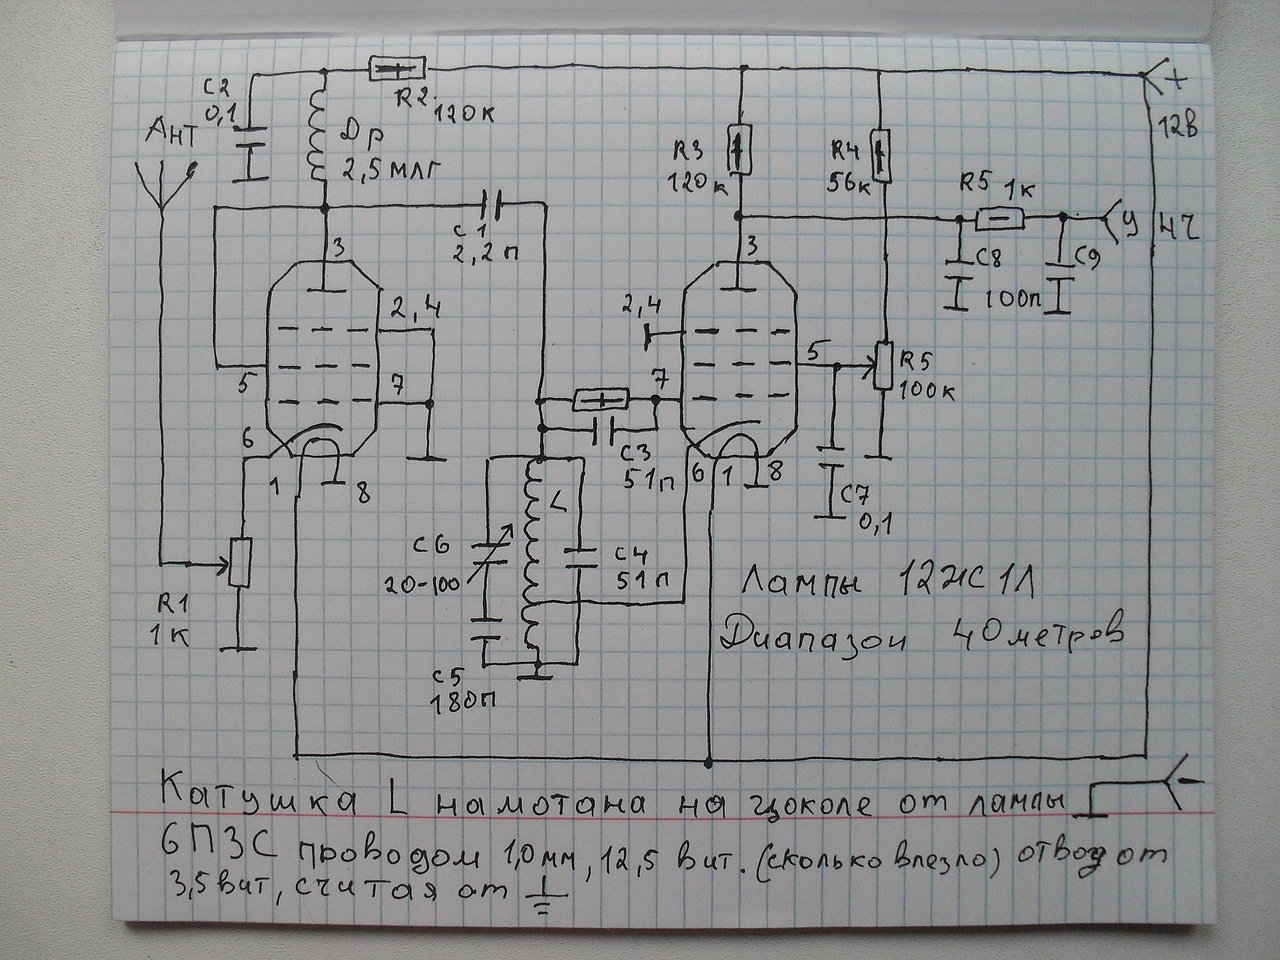 С2
0,1
R2
120к
Ант
Др
2,5 млГ
+
12В
R3
120к
R4
56к
R5 1к
У НЧ
С1
2,2п
С8
С9
100п
3
2,4
5
7
6
1
8
3
2,4
5
7
6
1
8
R5
100к
С3
51п
С7
0,1
L
С6
20-100
С4
51п
R1
1к
С5
180п
Лампы 12Ж1Л
Диапазон 40 метров
-
Катушка L намотана на цоколе от лампы
6П3С проводом 1,0мм, 12,5 вит. (сколько влезло) отвод от
3,5 вит, считая от